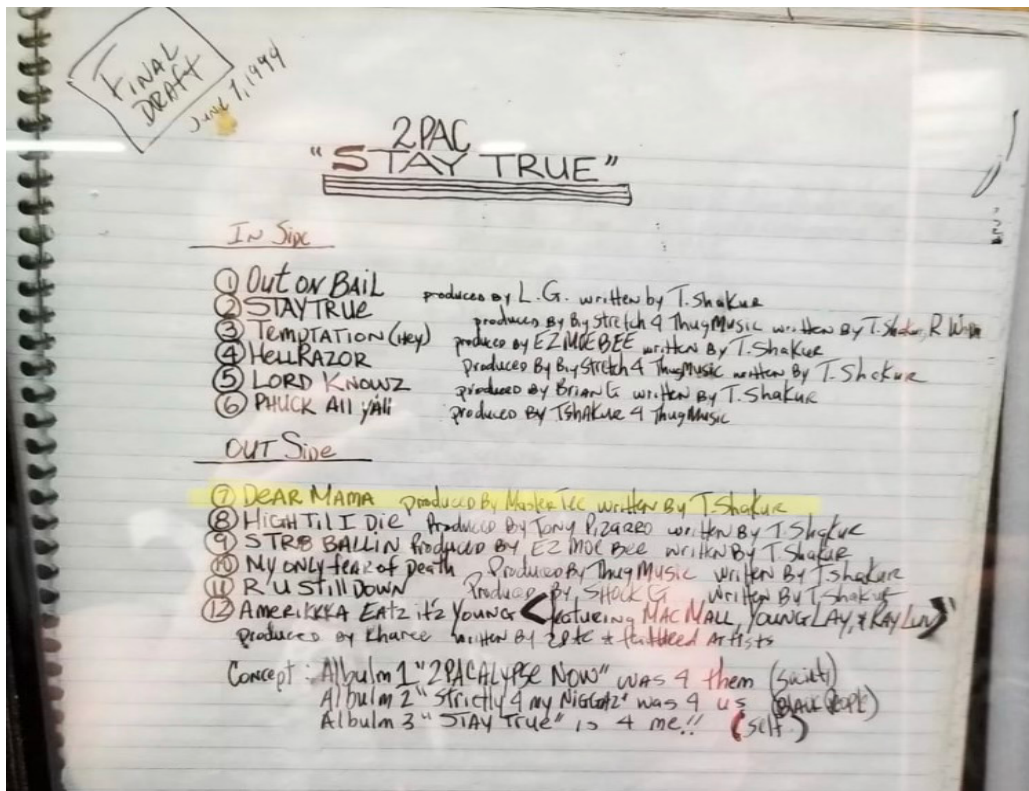 FINAL
DRAFT
JUNE 7, 1994
2PAC
"STAY TRUE"
IN Side
① Out ON BAIL produced By L.G. written by T. Shakur
② STAY TRUE produced By Big Stretch 4 Thug Music written By T. Shakur, R
③ TEMPTATION (HEY) produced by EZ MOE BEE written By T. Shakur
④ HELLRAZOR Produced By Big Stretch 4 Thug Music written By T. Shakur
⑤ LORD KNOWZ produced By Brian G written By T. Shakur
⑥ PHUCK All y'all produced By TShakur 4 Thug Music
OUT Side
⑦ DEAR MAMA produced By Master Tec written By T. Shakur
⑧ HIGH Til I Die Produced By Tony Pizarro written By T. Shakur
⑨ STR8 BALLIN Produced By EZ MOE Bee written By T. Shakur
⑩ My only fear of Death Produced By Thug Music written By T. Shakur
⑪ R U Still DOWN Produced By, SHOCK G written By T. Shakur
⑫ AMERIKKKA EATZ it'z YOUNG < featuring MAC MALL, YOUNG LAY, & RAY LUV >
produced by Kharee written By 2PAC & featured Artists
Concept: Albulm 1 "2PACALYPSE NOW" was 4 them (society)
Albulm 2 "Strictly 4 my NIGGAZ" was 4 us (BLACK PEOPLE)
Albulm 3 "STAY TRUE" is 4 me!! (self)